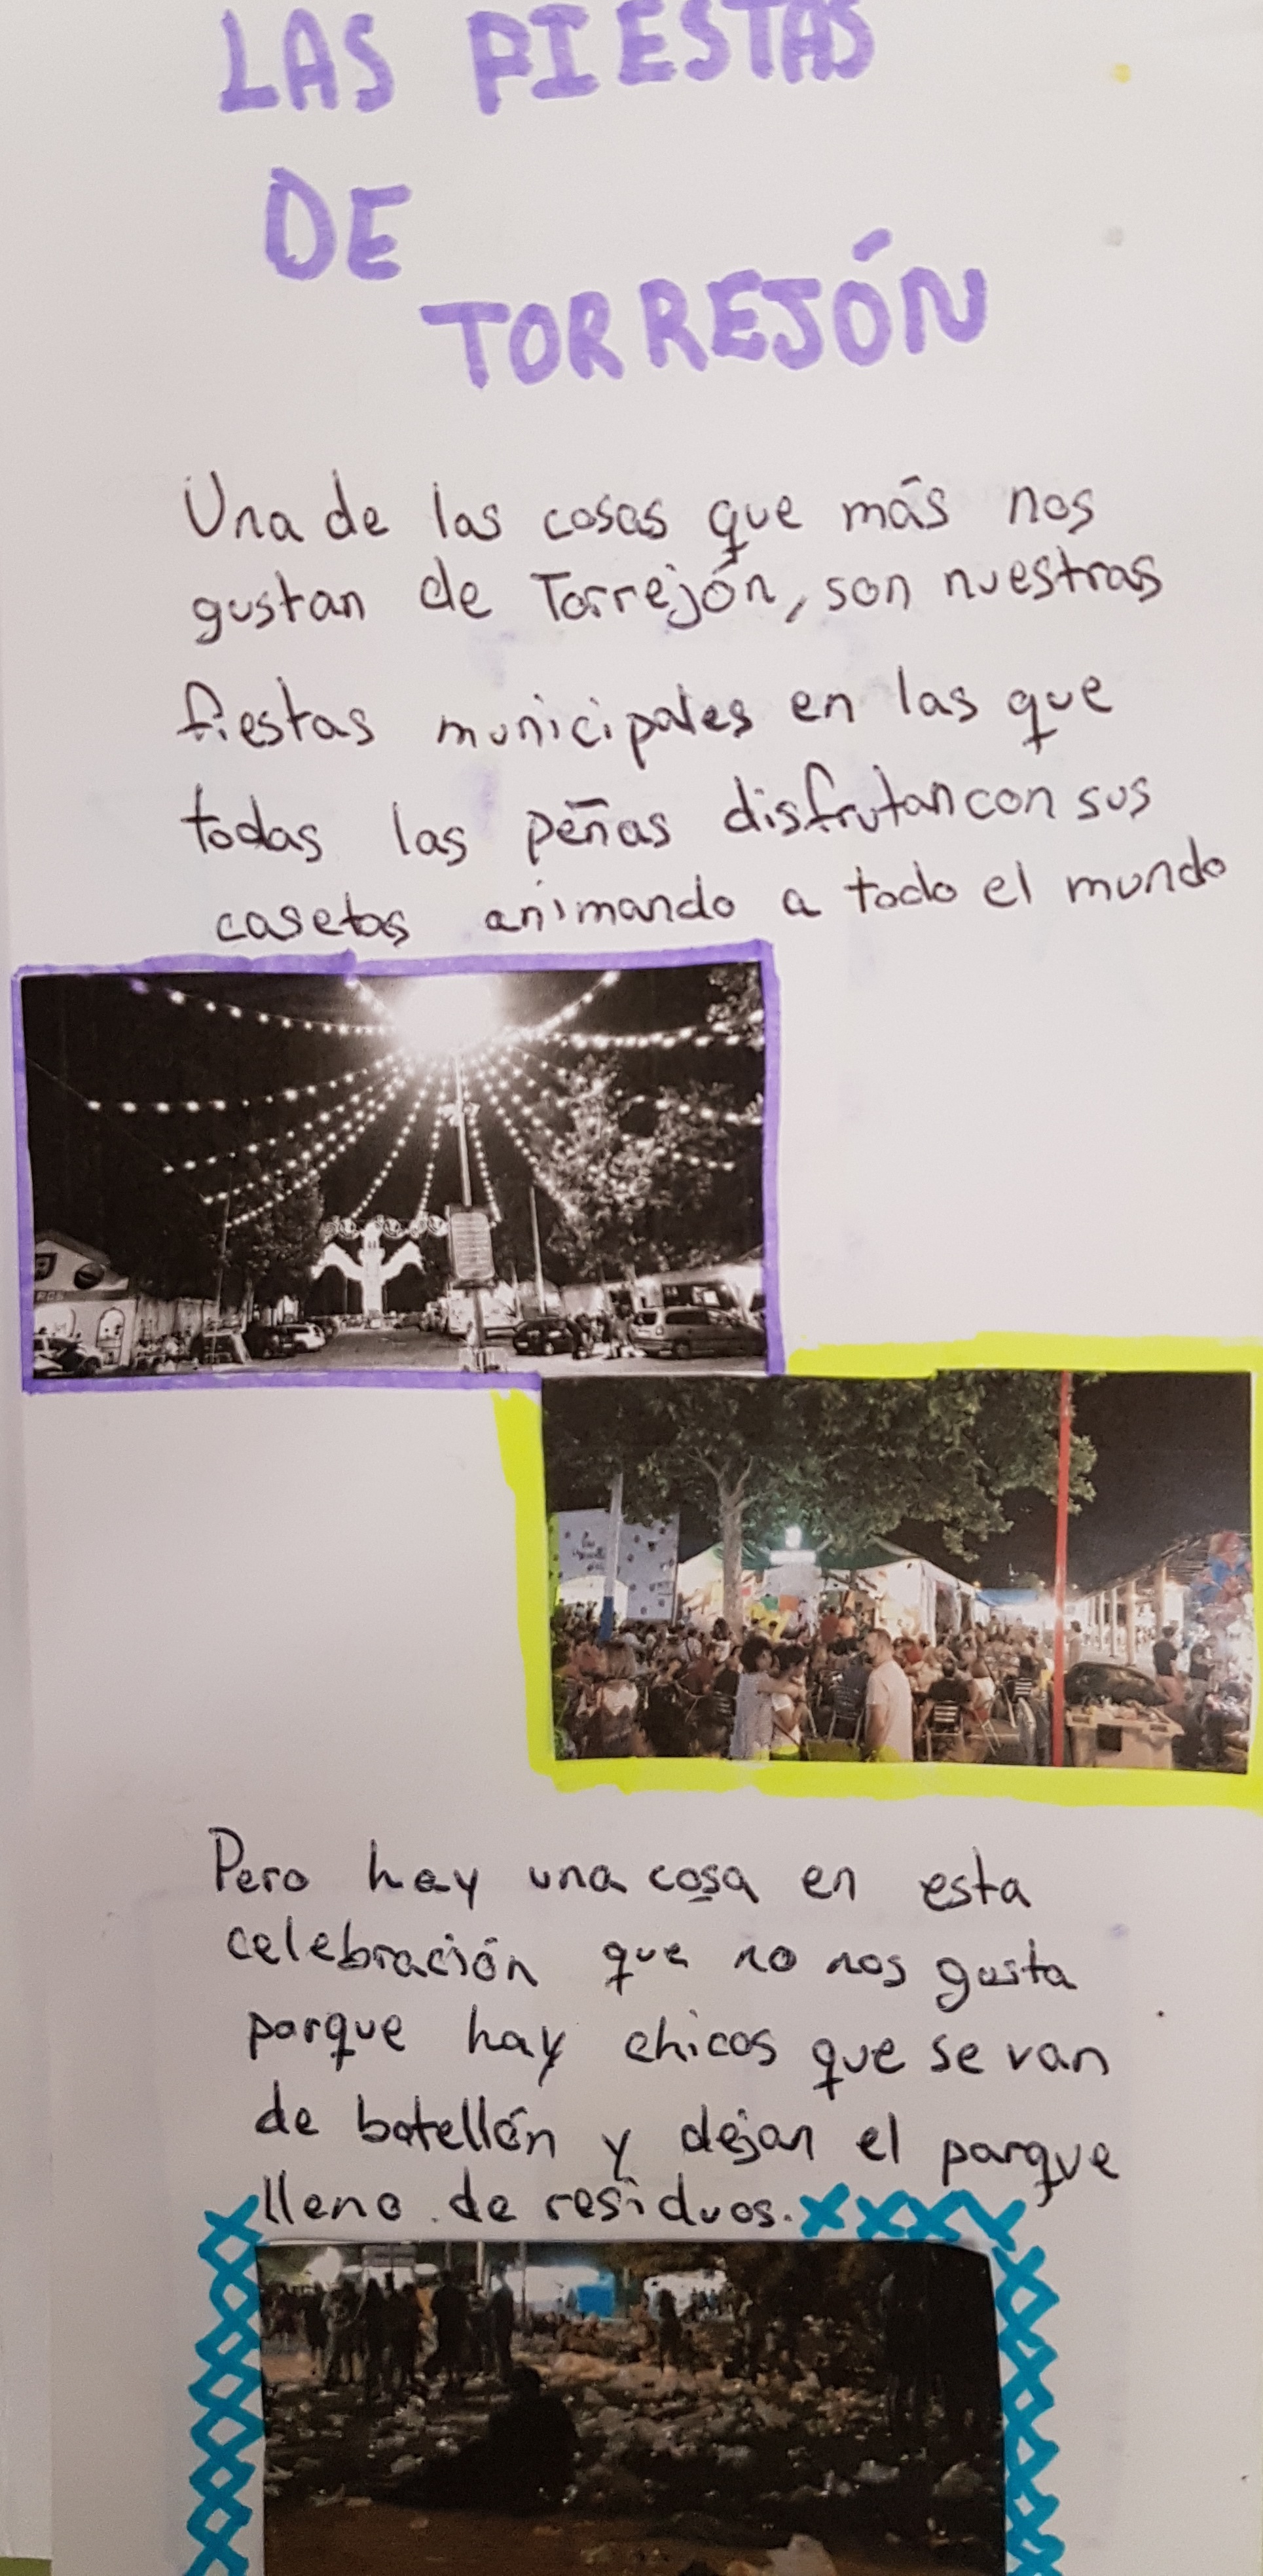 LAS FIESTAS
DE
TORREJÓN
Una de las cosas que más nos
gustan de Torrejón, son nuestras
fiestas municipales en las que
todas las peñas disfrutan con sus
casetas animando a todo el mundo
Pero hay una cosa en esta
celebración que no nos gusta
porque hay chicos que se van
de botellón y dejan el parque
lleno de residuos.